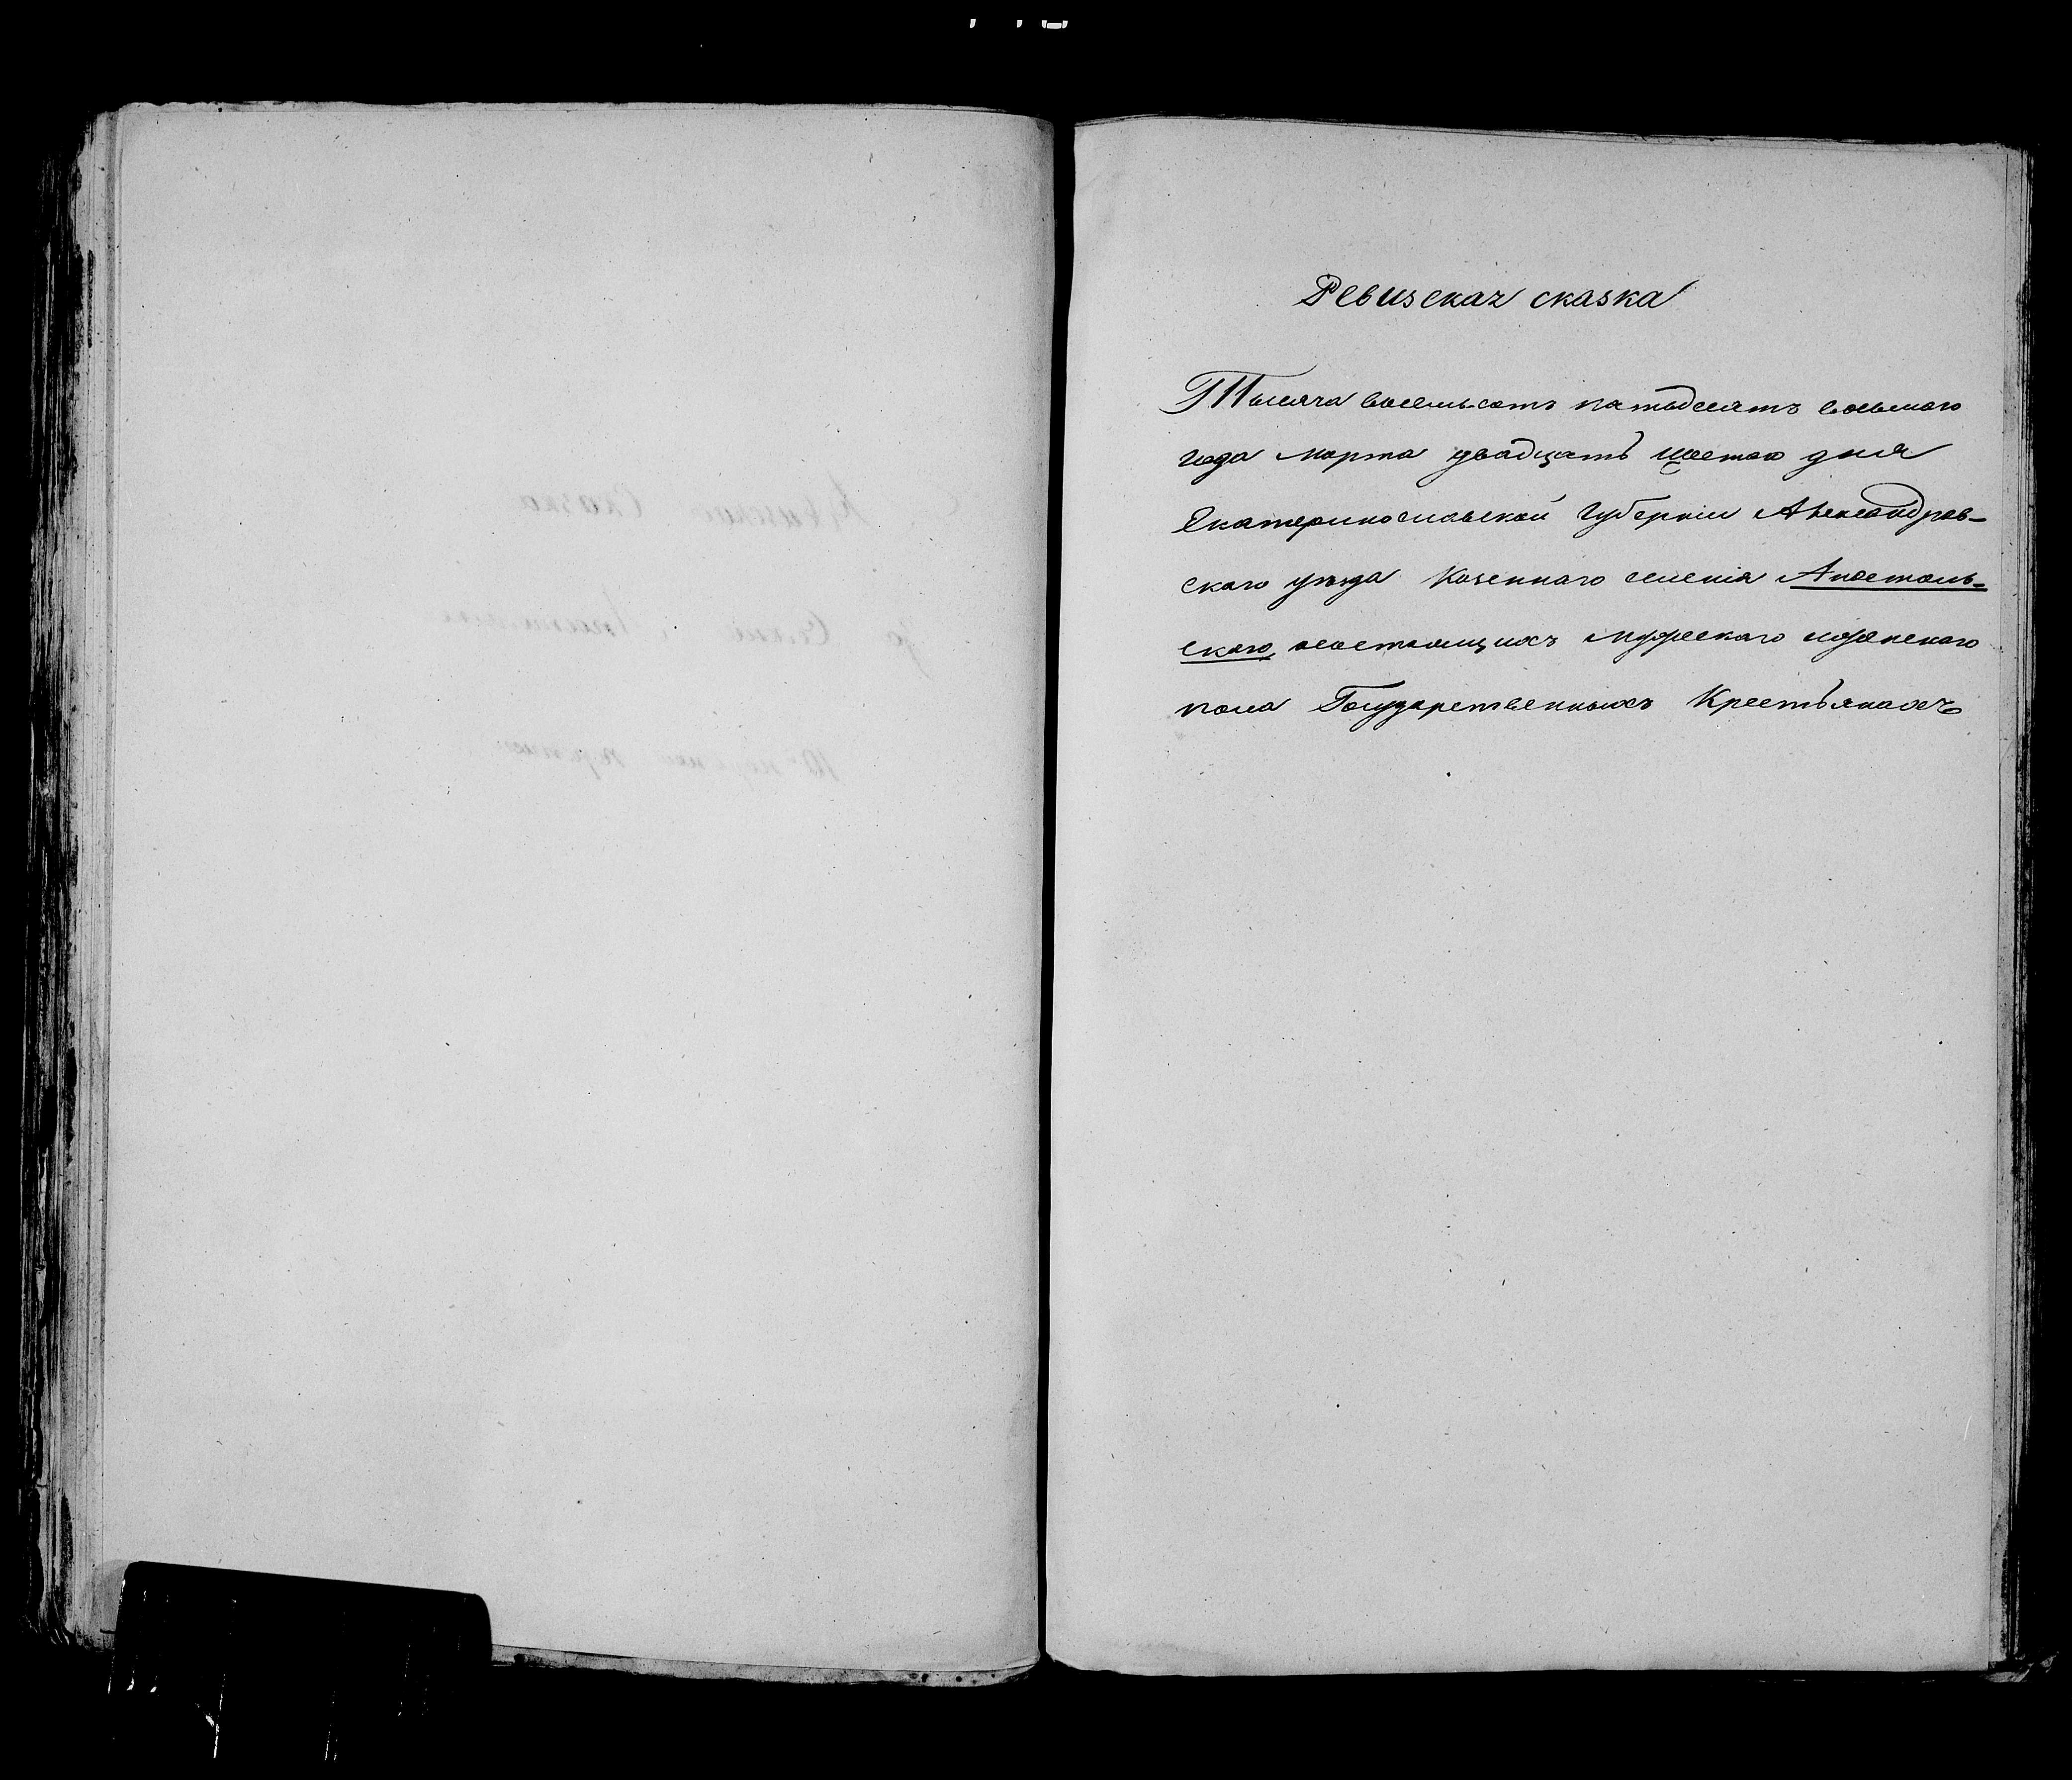 Ревизская сказка
Тысяча восемьсотъ пятьдесятъ восьмаго
года Марта двадцать шестаго дня
Екатеринославской Губерніи Александров-
скаго уѣзда Казеннаго селенія Апостоль-
скаго, о состоящихъ мужескаго и женскаго
пола Государственныхъ Крестьянахъ